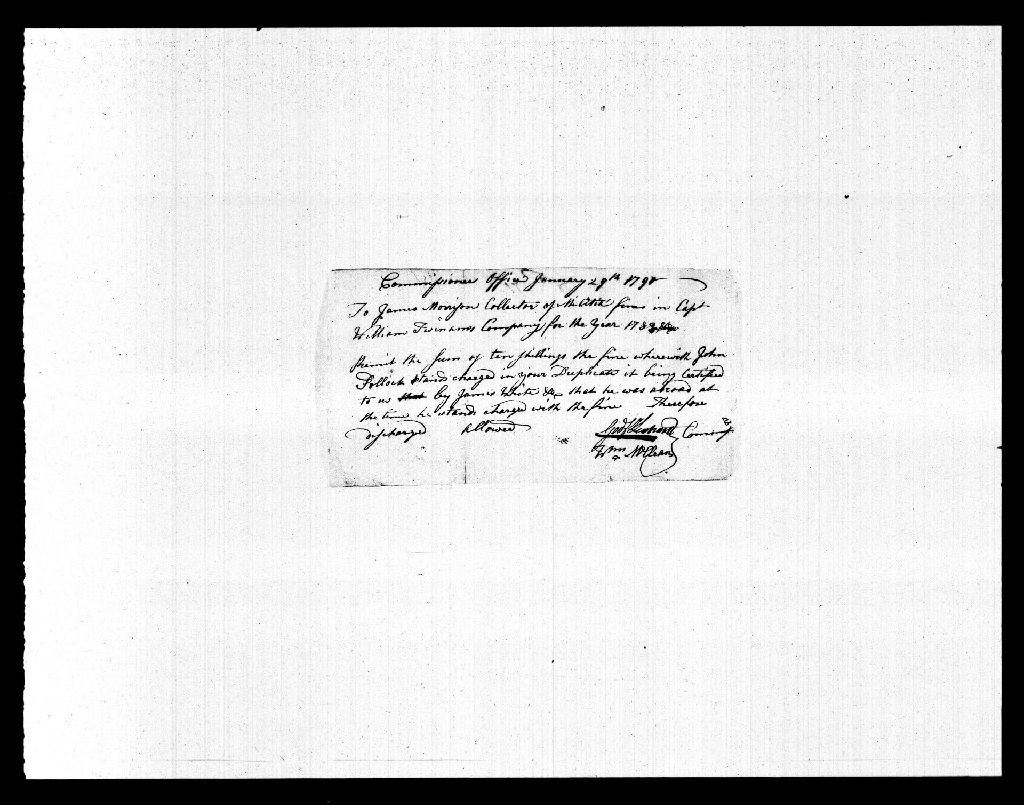 Commissioners Office January 29th 1790
To James Morrison Collector of Militia fines in Capt
William Twinams Company for the Year 1788
Remit the Sum of ten shillings the fine wherewith John
Pollock stands charged in your Duplicate it being Certified
to us by James White &c that he was abroad at
the time he stands charged with the fine Therefore
discharged Allowed
Commiss
Wm McClean